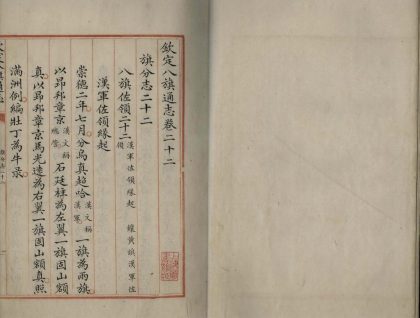 欽定八旗通志卷二十二
旗分志二十二
八旗佐領二十二 漢軍佐領緣起 鑲黃旗漢軍佐領
漢軍佐領緣起
崇德二年七月分烏真超哈 漢文稱漢軍 一旗為兩旗
以昂邦章京 漢文稱總管 石廷柱為左翼一旗固山額
真以昂邦章京馬光遠為右翼一旗固山額真照
滿洲例編壯丁為牛彔